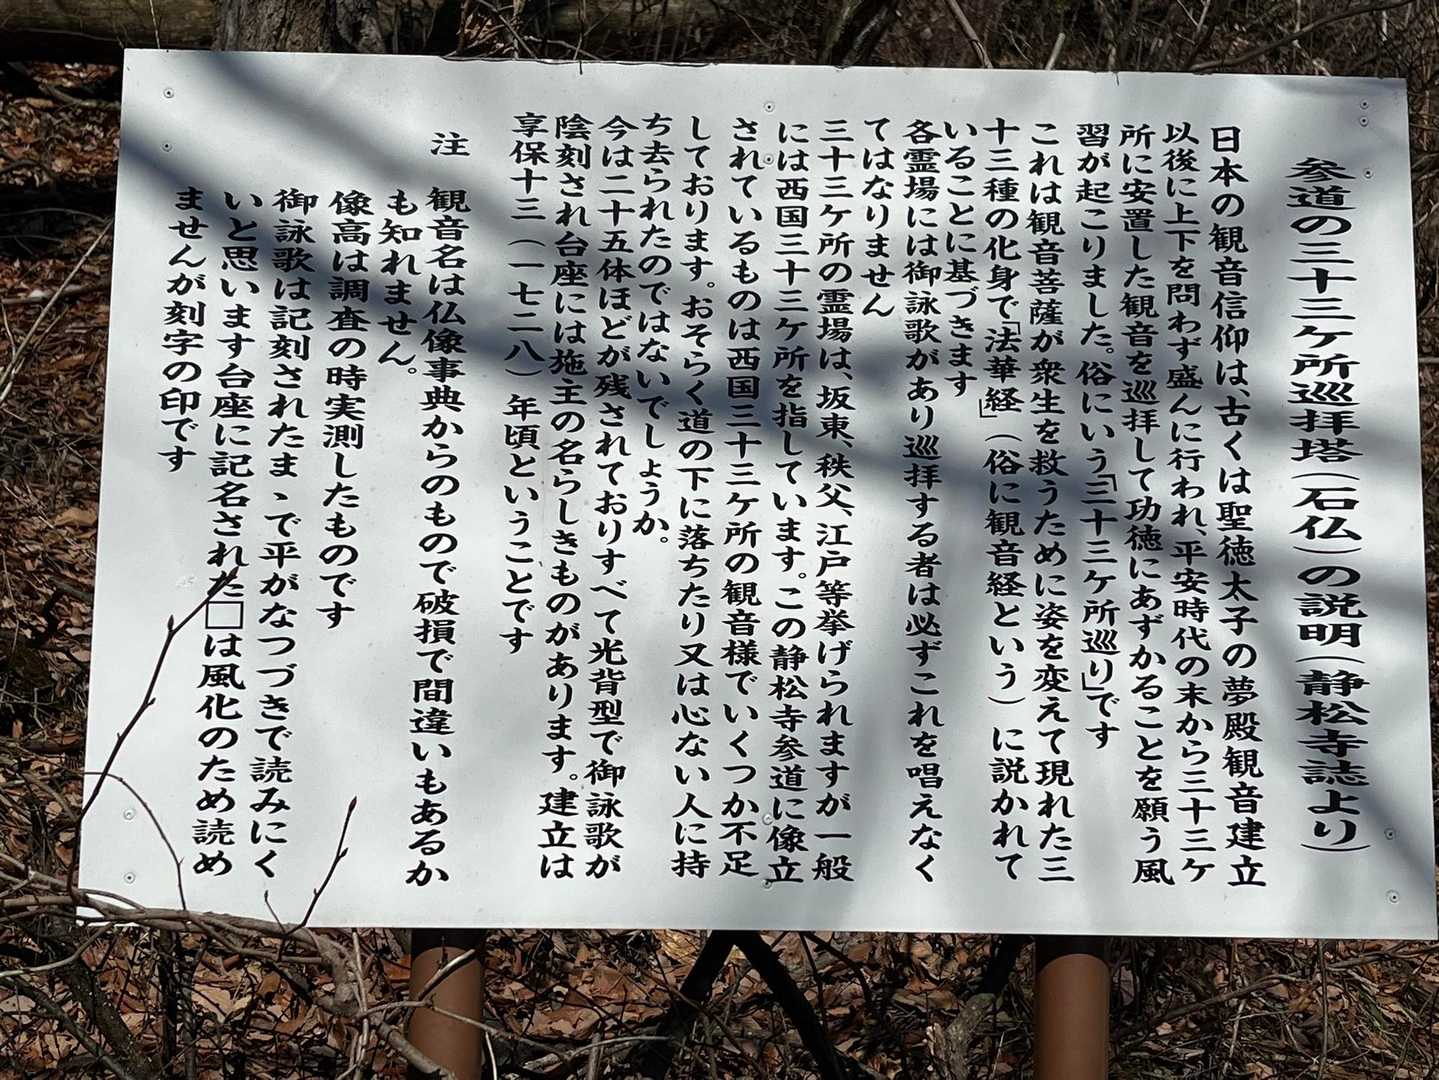 参道の三十三ケ所巡拝塔(石仏)の説明(静松寺誌より)
日本の観音信仰は、古くは聖徳太子の夢殿観音建立
以後に上下を問わず盛んに行われ、平安時代の末から三十三ケ
所に安置した観音を巡拝して功徳にあずかることを願う風
習が起こりました。俗にいう「三十三ケ所巡り」です
これは観音菩薩が衆生を救うために姿を変えて現れた三
十三種の化身で「法華経」(俗に観音経という)に説かれて
いることに基づきます
各霊場には御詠歌があり巡拝する者は必ずこれを唱えなく
てはなりません
三十三ケ所の霊場は、坂東、秩父、江戸等挙げられますが一般
には西国三十三ケ所を指しています。この静松寺参道に像立
されているものは西国三十三ケ所の観音様でいくつか不足
しております。おそらく道の下に落ちたり又は心ない人に持
ち去られたのではないでしょうか。
今は二十五体ほどが残されておりすべて光背型で御詠歌が
陰刻され台座には施主の名らしきものがあります。建立は
享保十三(一七二八)年頃ということです
注 観音名は仏像事典からのもので破損で間違いもあるか
も知れません。
像高は調査の時実測したものです
御詠歌は記刻されたまゝで平がなつづきで読みにく
いと思います台座に記名された□は風化のため読め
ませんが刻字の印です